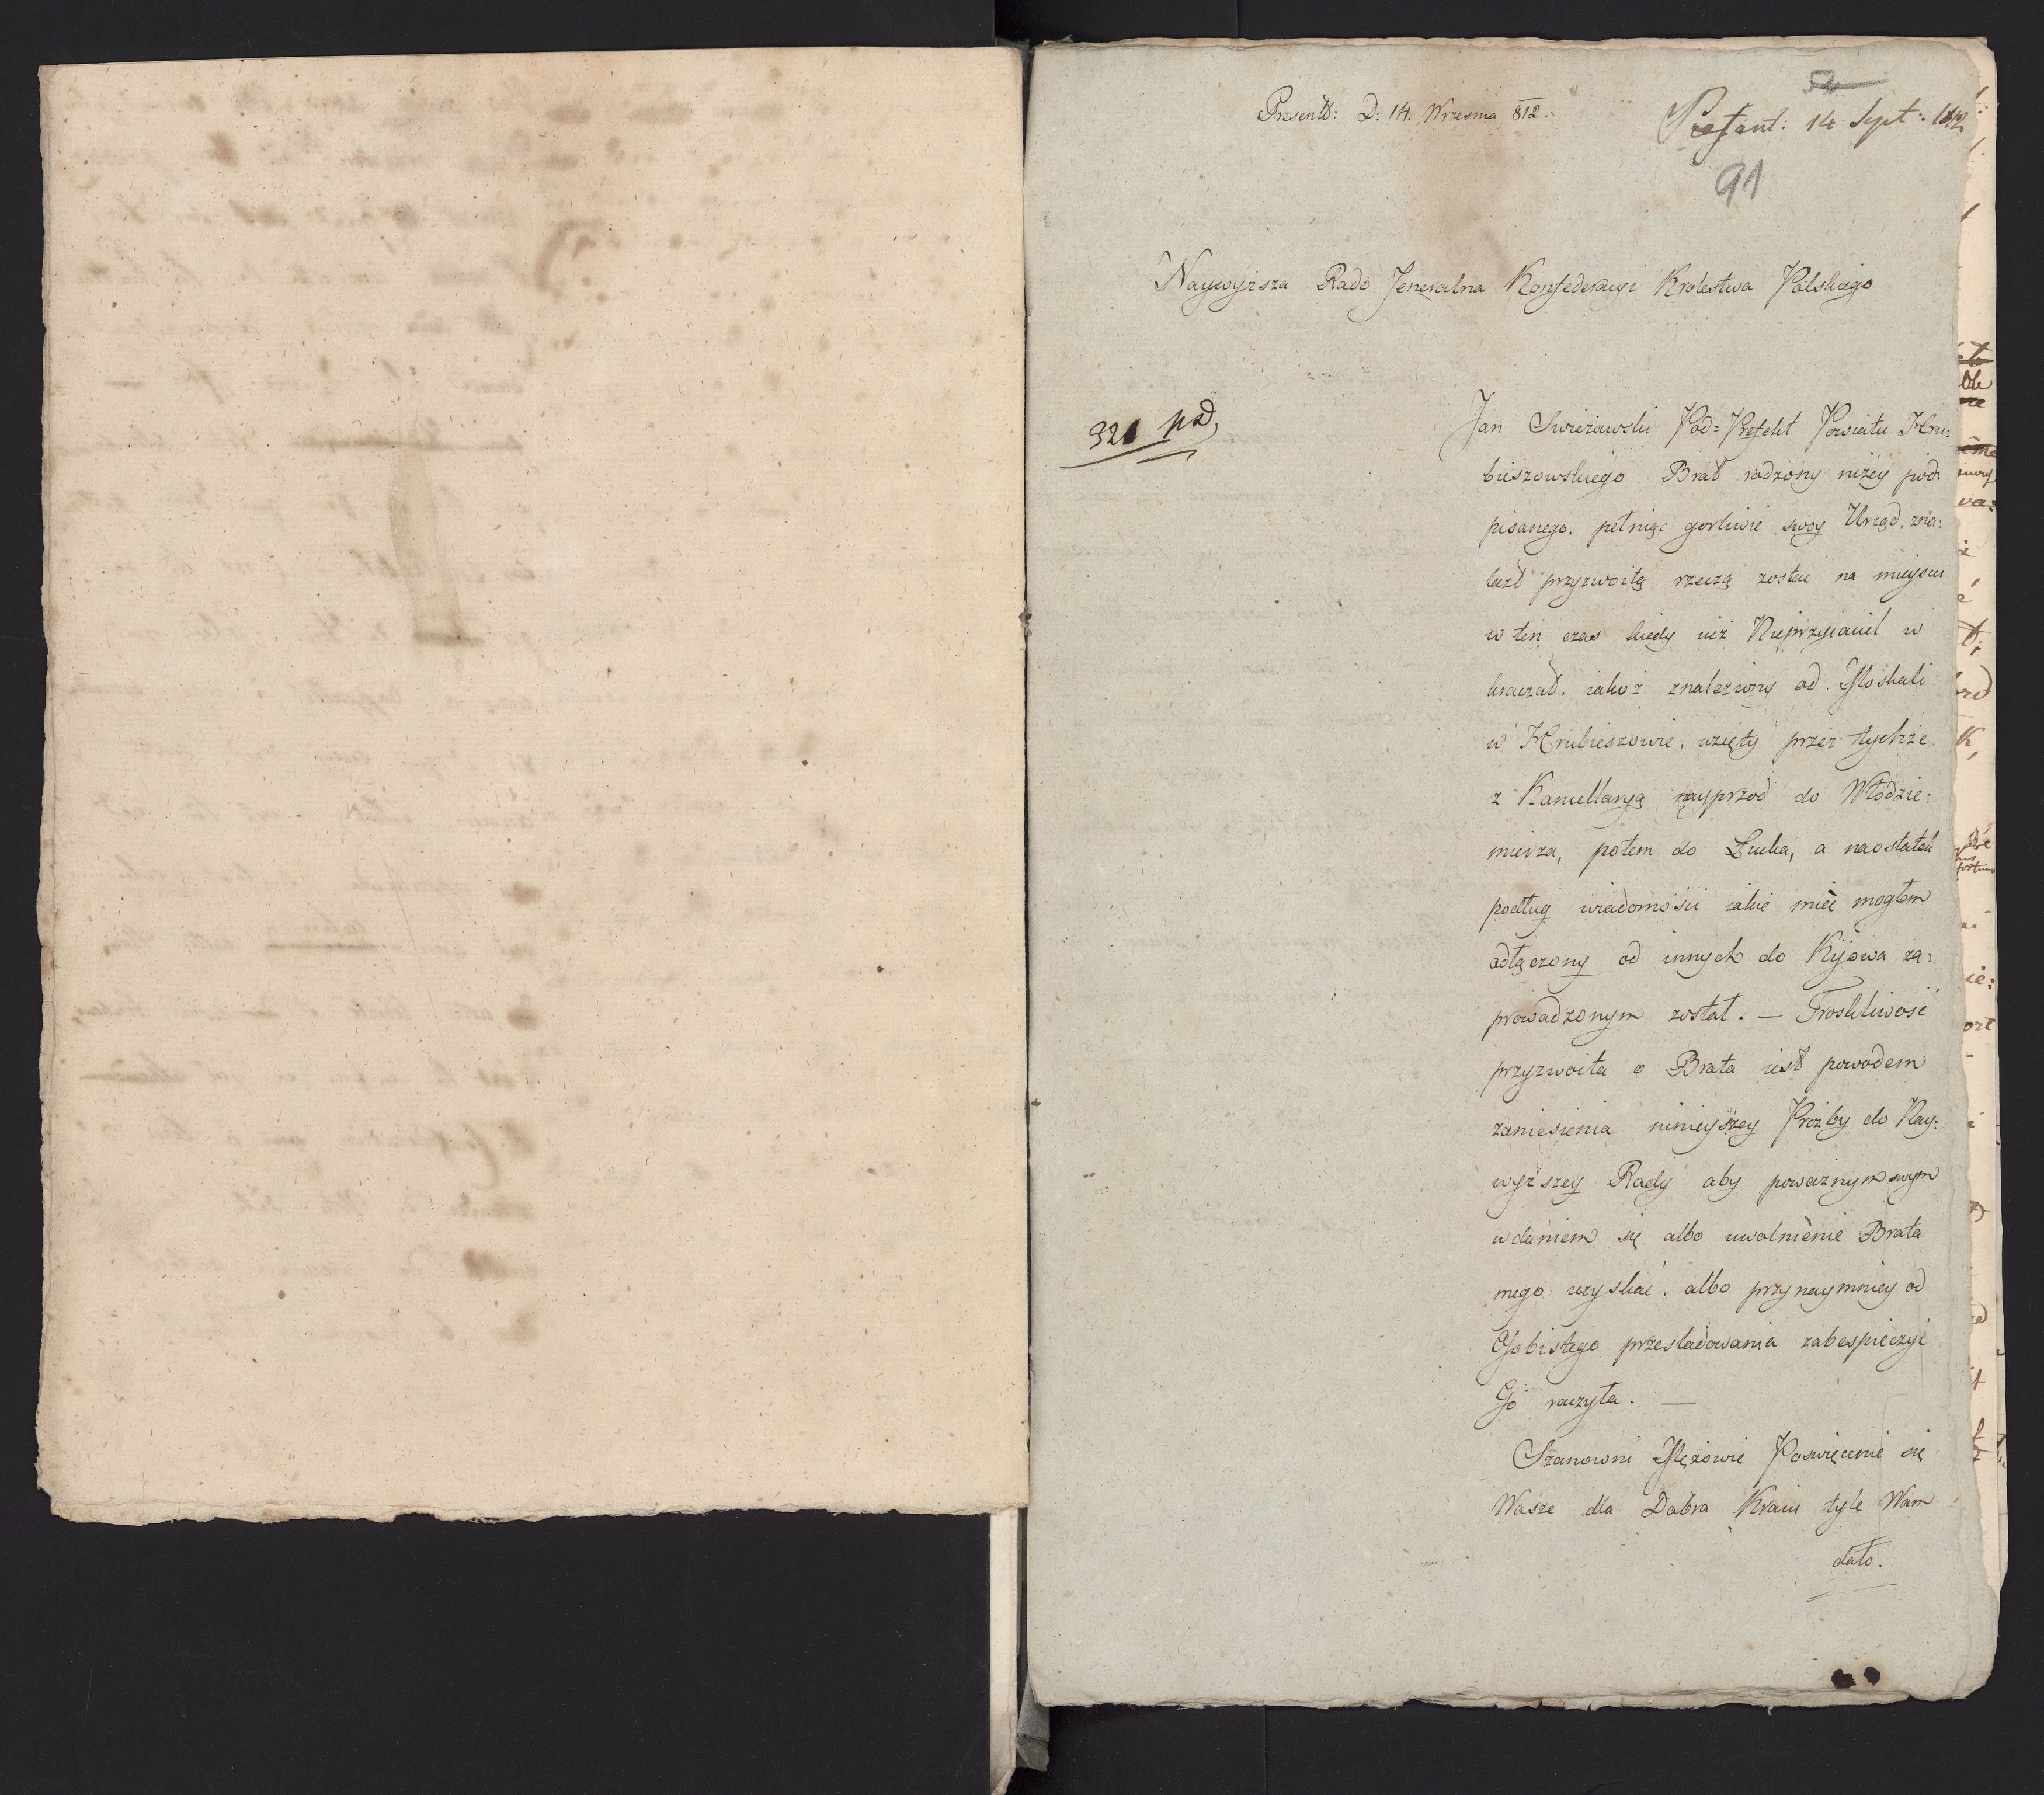 52
Presentt: D: 14. Wrzesnia 812.
Præsent: 14 Sept: 1812
91
Naywyższa Rado Jeneralna Konfederacyi Krolestwa Polskiego
321
Jan Swieżawski Pod=Prefekt Powiatu Hru:
bieszowskiego Brat rodzony niżey pod:
pisanego. pełniąc gorliwie swoy Urząd, zna:
lazł przyzwoitą rzeczą zostać na mieyscu
w ten czas kiedy iuż Nieprzyiaciel w
kraczał. iakoż znaleziony od Moskali
w Hrubieszowie, wzięty przez tychże
z Kancellaryą nayprzod do Włodzie:
mierza, potem do Łucka, a naostatek
podług wiadomości iakie mieć mogłem
odłączony od innych do Kijowa za:
prowadzonym został. — Troskliwość
przyzwoita o Brata iest powodem
zaniesienia ninieyszey Proźby do Nay:
wyższey Rady aby poważnym swym
wdaniem się albo uwolnienie Brata
mego uzyskać. albo przynaymniey od
Osobistego przesladowania zabespieczyć
Go raczyła. —
Szanowni Mężowie Poswięcenie się
Wasze dla Dobra Kraiu tyle Wam
dało.